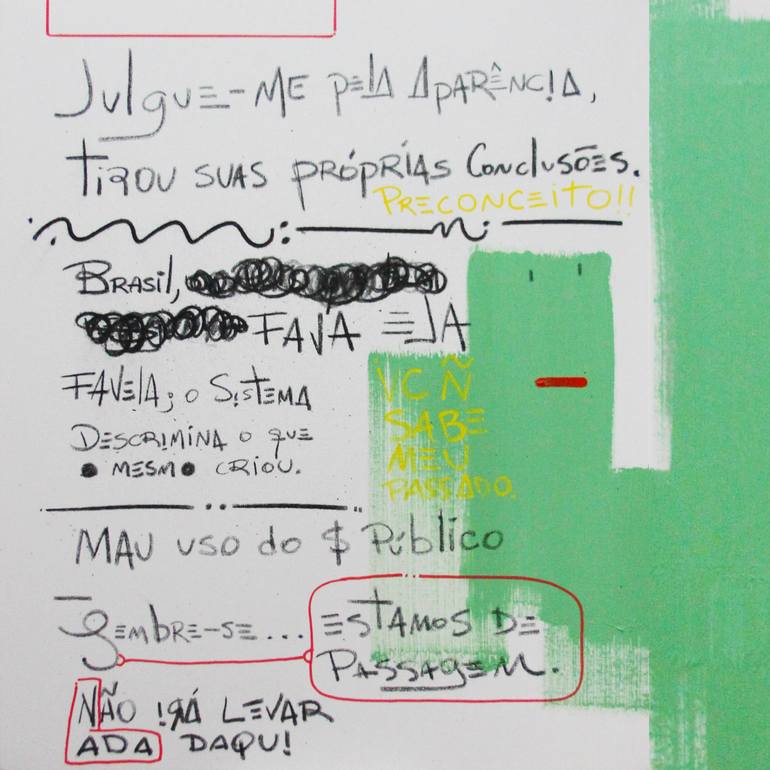 Julgue-ME pela APARÊNC!A,
tirou suas próprias Conclusões.
PRECONCEITO!!
BRASIL,
FAVELA; o SISTEMA
DESCR!MINA o que
MESMO CRIOU.
VC Ñ
SABE
MEU
PASSADO.
MAU uso do $ Público
Lembre-se... ESTAMOS DE
PASSAGEM.
NÃO !RÁ LEVAR
ADA DAQU!